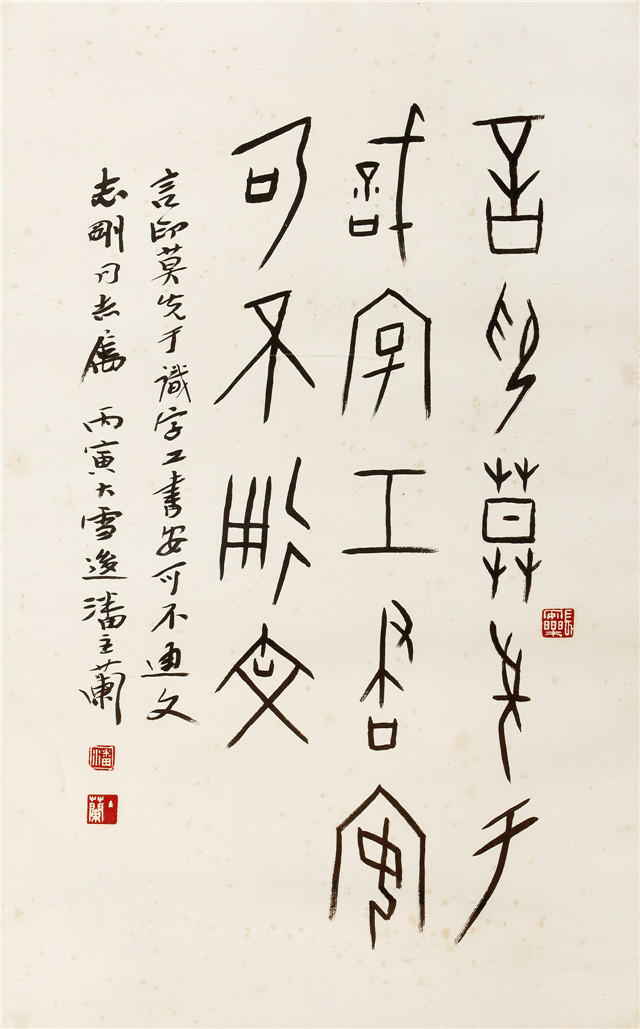 言印莫先于
識字工書安
可不通文
言印莫先于識字工書安可不通文
志剛同志屬 丙寅大雪後潘主蘭
潘
主蘭